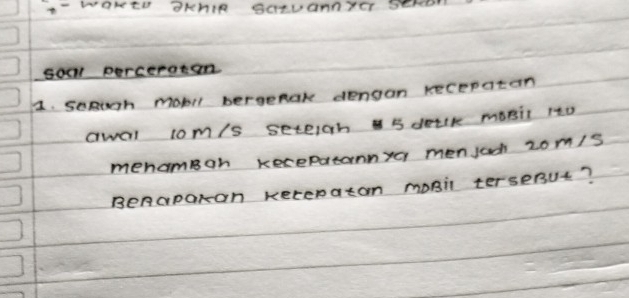 t - waktu akhir satuannya sekon
soal percepatan
1. seBuah mobil bergerak dengan kecepatan
awal 10 m/s setelah 5 detik mobil itu
menamBah kecepatannya menjadi 20 m/s
BeRapakah kecepatan moBil terseBut?